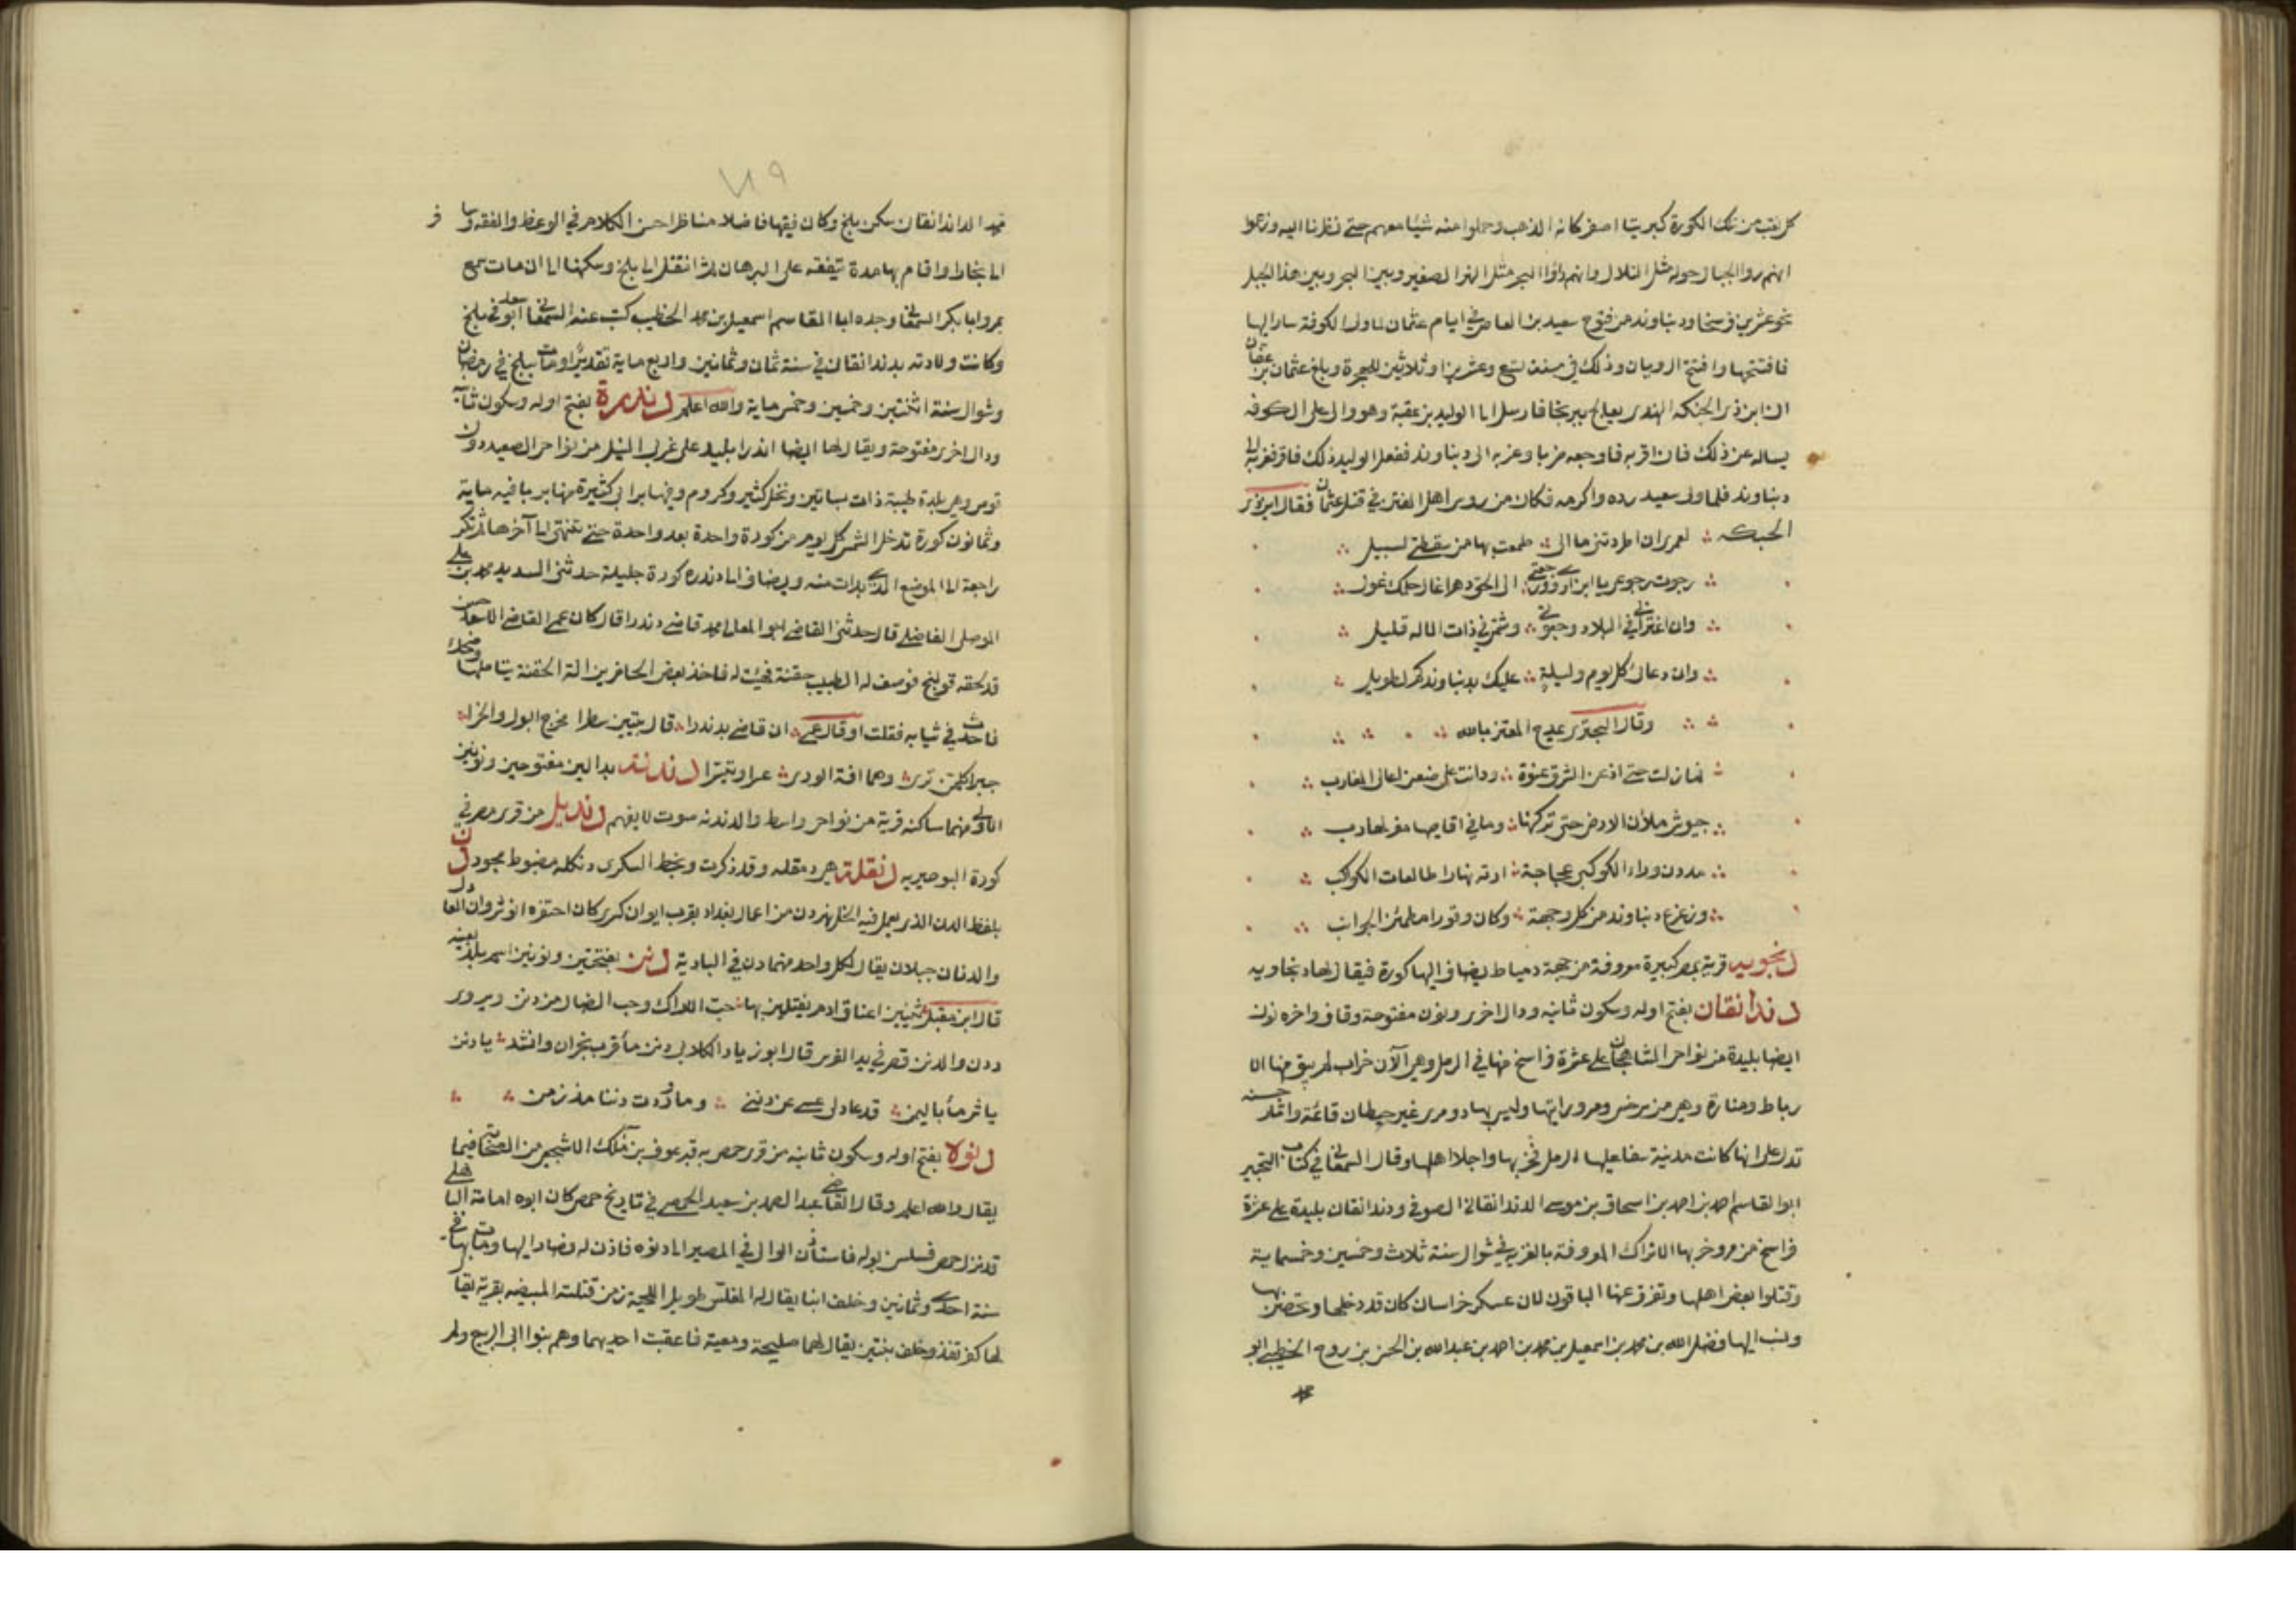 كل نقب من تلك الكورة كبريتا اصفر كانه الذهب وحملوا منه شيئا معهم حتى نظرنا اليه وزعموا
انهم راوا الجبال حوله مثل التلال وانهم راوا البحر مثل النهر الصغير وبين البحر وبين هذا الجبل
نحو عشرين فرسخا ودنباوند من فتوح سعيد بن العاص في ايام عثمان لما ولي الكوفة سار اليها
فافتتحها وافتتح الرويان وذلك في سنة تسع وعشرين او ثلاثين للهجرة وبلغ عثمان بن عفان
ان ابن ذي الحبكه الهندي يعالج فارسل الى الوليد بن عقبة وهو وال على الكوفه
يساله عن ذلك فان اقر به فاوجعه ضربا وغربه الى دنباوند ففعل الوليد ذلك فاقر فغربه الى
دنباوند فلما ولي سعيد رده واكرمه فكان من رؤس اهل الفتن في قتل عثمان فقال ابن ذي
الحبكه لعمري ان اطردتني ما الى طمعت بها من سقطتي لسبيل
رجوت رجوعي يا ابن اروى ورجعتي الى الحق دهرا غال حلمك غول
وان اغترابي في البلاد وجفوتي وشتمي في ذات الاله قليل
وان دعائي كل يوم وليلة عليك بدنباوندكم لطويل
وقال البحتري يمدح المعتز بالله
فما زلت حتى اذعن الشرق عنوة ودانت على ضغن اعالي المغارب
جيوش ملأن الارض حتى تركنها وما في اقاصيها مفر لهارب
مددن وراء الكوكبي عجاجة ارته نهارا طالعات الكواكب
وزعزع دنباوند من كل وجهة وكان وقورا مطمئن الجوانب
دنجويه قرية بمصر كبيرة معروفة من جهة دمياط يضاف اليها كورة فيقال لها دنجاويه
دندانقان بفتح اوله وسكون ثانيه ودال اخرى ونون مفتوحة وقاف واخره نون
ايضا بليدة من نواحي الشاهجان على عشرة فراسخ منها في الرمل وهي الآن خراب لم يبق منها الا
رباط ومنارة وهي من سرخس ومرو رايتها وليس بها دومري غير حيطان قائمة واثار حسنه
تدل على انها كانت مدينة سفا عليها الرمل فخربها واجلا اهلها وقال السمعاني في كتاب التحبير
ابو القاسم احمد بن احمد بن اسحاق بن موسى الدندانقاني الصوفي ودندانقان بليدة على عشرة
فراسخ من مرو خربها الاتراك المعروفة بالغزيه في شوال سنة ثلاث وخمسين وخمسماية
وقتلوا بعض اهلها وتفرق عنها الباقون لان عسكر خراسان كان قد دخلها وتحصن بها
وينسب اليها فضل الله بن محمد بن اسمعيل بن محمد بن احمد بن عبد الله بن الحسن بن روح الخطيبي ابو
محمد الداندانقان سكن بلخ وكان فقيها فاضلا مناظرا حسن الكلام في الوعظ والفقه وسافر
الى بخارا واقام بها مدة يتفقه على البرهان ثم انتقل الى بلخ وسكنها الى ان مات سمع
بمرو ابا بكر السمعاني وجده ابا القاسم اسمعيل بن محمد الخطيب كتب عنه السمعاني ابو سعد في بلخ
وكانت ولادته بدندانقان في سنة ثمان وثمانين واربع ماية تقديرا ومات ببلخ في رمضان
وشوال سنة اثنتين وخمسين وخمس ماية والله اعلم دندرة بفتح اوله وسكون ثانيه
ودال اخرى مفتوحة ويقال لها ايضا اندرا بليد على غربي النيل من نواحي الصعيد دون
قوص وهي بلدة طيبة ذات بساتين ونخل كثير وكروم وفيها برابي كثيرة منها بربا فيه ماية
وثمانون كورة تدخل الشمس كل يوم من كورة واحدة بعد واحدة حتى تنتهي الى آخرها ثم تكر
راجعة الى الموضع الذي بدات منه ويضاف الى دندره كورة جليلة حدثني السديد محمد بن علي
الموصلي الفاضل قال حدثني القاضي ابو المعالي محمد قاضي دندرا قال كان عمي القاضي الاسعد حسن
قد لحقه قولنج فوصف له الطبيب حقنة فجئت له فاخذ بعض الحاضرين الة الحقنة يتاملها وضحك
فاحدث في ثيابه فقلت او قال عمي ان قاض بدندرا قال بيتين سطرا مخرج البول والخرا
حيرا كل من ترى وهما افة الورى عسرا وتيسرا دندنة بدالين مفتوحين ونونين
الاولى منهما ساكنه قرية من نواحي واسط والدندنه صوت لا يفهم دنديل من قرى مصر في
كورة البوصيريه دنقلة هي دمقله وقد ذكرت وبخط السكري دنكله مضبوط مجود دن
بلفظ الدن الذي يعمل فيه الخل نهر دن من اعمال بغداد بقرب ايوان كسرى كان احتفره انوشروان العادل
والدنان جبلان يقال لكل واحد منهما دن في البادية دنن بفتحتين ونونين اسم بلد بعينه
قال ابن مقبل يثنين اعناق ادم يفتلين بها حب الاراك وحب الضال من دنن ويروى
ددن والدنن قصر في يد الفرس قال ابو زياد الكلابي دنن ماء قرب نجران وانشد يا دننا
يا شر ماء باليمن قد عاد لي عن دنن وما وردت دننا مذ زمن
دنوة بفتح اوله وسكون ثانيه من قرى حمص به قبر عوف بن مالك الاشجعي من الصحابة فيما
يقال والله اعلم وقال القاضي عبد الصمد بن سعيد الحمصي في تاريخ حمص كان ابوه امامة الباهلي
قد نزل حمص فسلس بوله فاستاذن الوالي في المصير الى دنوه فاذن له فصار اليها ومات بها في
سنة احدى وثمانين وخلف ابنا يقال له المغلس طويل اللحية زمن قتلته المبيضه بقرية يقال
لها كفر نغد وخلف بنتين يقال لهما صليحة ومعية فاعقبت احديهما وهم بنوا ابي الربيع ولم